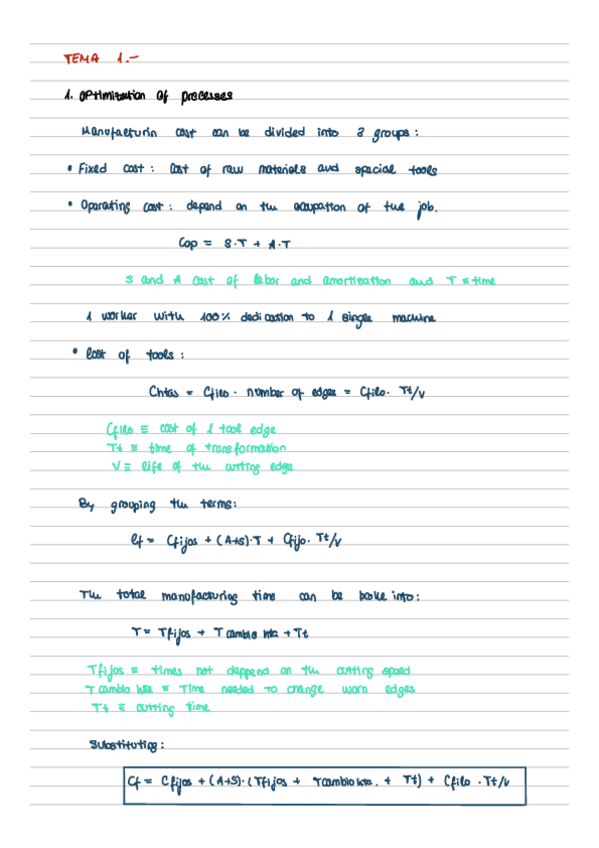 TEMA 1.-
1. Optimization of processes
Manufacturin cost can be divided into 3 groups:
• Fixed cost: Cost of raw materials and special tools
• Operating cost: depend on the ocupation of the job.
Cop = S·T + A·T
S and A cost of labor and amortization and T ≡ time
1 worker with 100% dedication to 1 single machine
• Cost of tools:
Chtas = Cfilo · number of edges = Cfilo · Tt/V
Cfilo ≡ cost of 1 tool edge
Tt ≡ time of transformation
V ≡ life of the cutting edge
By grouping the terms:
Cf = Cfijos + (A+S)·T + Cfijo · Tt/V
The total manufacturing time can be broke into:
T = Tfijos + T cambio hta + Tt
Tfijos ≡ times not deppend on the cutting speed
T cambio hta ≡ Time needed to change worn edges
Tt ≡ cutting time
Substituting:
Cf = Cfijos + (A+S)·(Tfijos + Tcambio hta. + Tt) + Cfilo · Tt/V